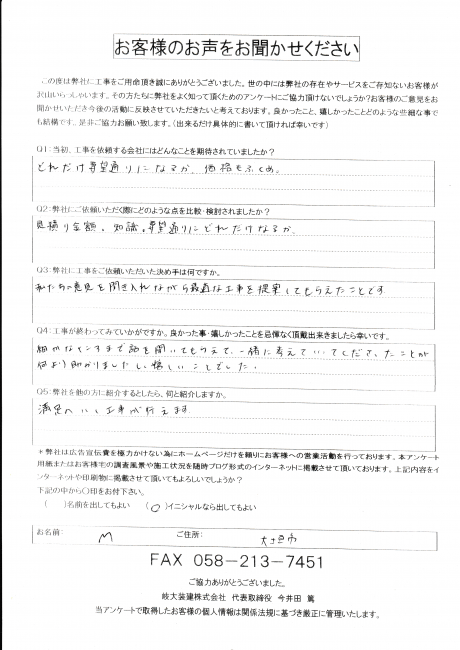 お客様のお声をお聞かせください
この度は弊社に工事をご用命頂き誠にありがとうございました。世の中には弊社の存在やサービスをご存知ないお客様が
沢山いらっしゃいます。その方たちに弊社をよく知って頂くためのアンケートにご協力頂けないでしょうか?お客様のご意見をお
聞かせいただき今後の活動に反映させていただきたいと考えております。良かったこと、嬉しかったことどのような些細な事で
も結構です。是非ご協力お願い致します。(出来るだけ具体的に書いて頂ければ幸いです)
Q1:当初、工事を依頼する会社にはどんなことを期待されていましたか?
どれだけ希望通りになるか。価格もふくめ。
Q2:弊社にご依頼いただく際にどのような点を比較・検討されましたか?
見積り金額。知識。希望通りにどれだけなるか。
Q3:弊社に工事をご依頼いただいた決め手は何ですか。
私たちの意見を聞き入れながら最適な工事を提案してもらえたことです。
Q4:工事が終わってみていかがですか。良かった事・嬉しかったことを忌憚なく頂戴出来きましたら幸いです。
細かなところまで話を聞いてもらえて、一緒に考えていてくださったことが
何より助かりましたし嬉しいことでした。
Q5:弊社を他の方に紹介するとしたら、何と紹介しますか。
満足のいく工事が行えます。
＊弊社は広告宣伝費を極力かけない為にホームページだけを頼りにお客様への営業活動を行っております。本アンケート
用紙またはお客様宅の調査風景や施工状況を随時ブログ形式のインターネットに掲載させて頂いております。上記内容をイ
ンターネットや印刷物に掲載させて頂いてもよろしいでしょうか?
下記の中から○印をお付下さい。
( )名前を出してもよい (○)イニシャルなら出してもよい
お名前: M ご住所: 大垣市
FAX 058-213-7451
ご協力ありがとうございました。
岐大装建株式会社 代表取締役 今井田 篤
当アンケートで取得したお客様の個人情報は関係法規に基づき厳正に管理いたします。